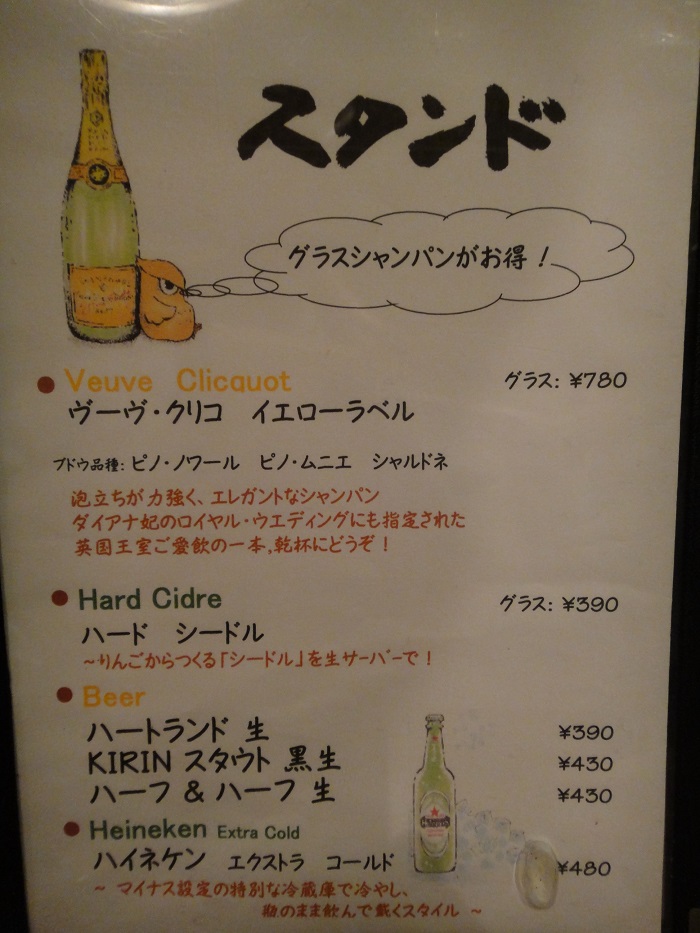 スタンド
グラスシャンパンがお得！
Veuve Clicquot グラス: ¥780
ヴーヴ・クリコ イエローラベル
ブドウ品種: ピノ・ノワール ピノ・ムニエ シャルドネ
泡立ちが力強く、エレガントなシャンパン
ダイアナ妃のロイヤル・ウエディングにも指定された
英国王室ご愛飲の一本,乾杯にどうぞ！
Hard Cidre グラス: ¥390
ハード シードル
~りんごからつくる「シードル」を生サーバーで！
Beer
ハートランド 生 ¥390
KIRIN スタウト 黒生 ¥430
ハーフ & ハーフ 生 ¥430
Heineken Extra Cold
ハイネケン エクストラ コールド ¥480
~ マイナス設定の特別な冷蔵庫で冷やし、
瓶のまま飲んで戴くスタイル ~